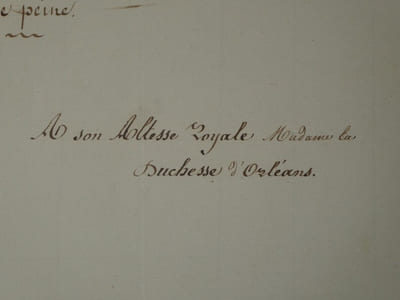 e peine.
A son Altesse Royale Madame la
Duchesse d'Orléans.